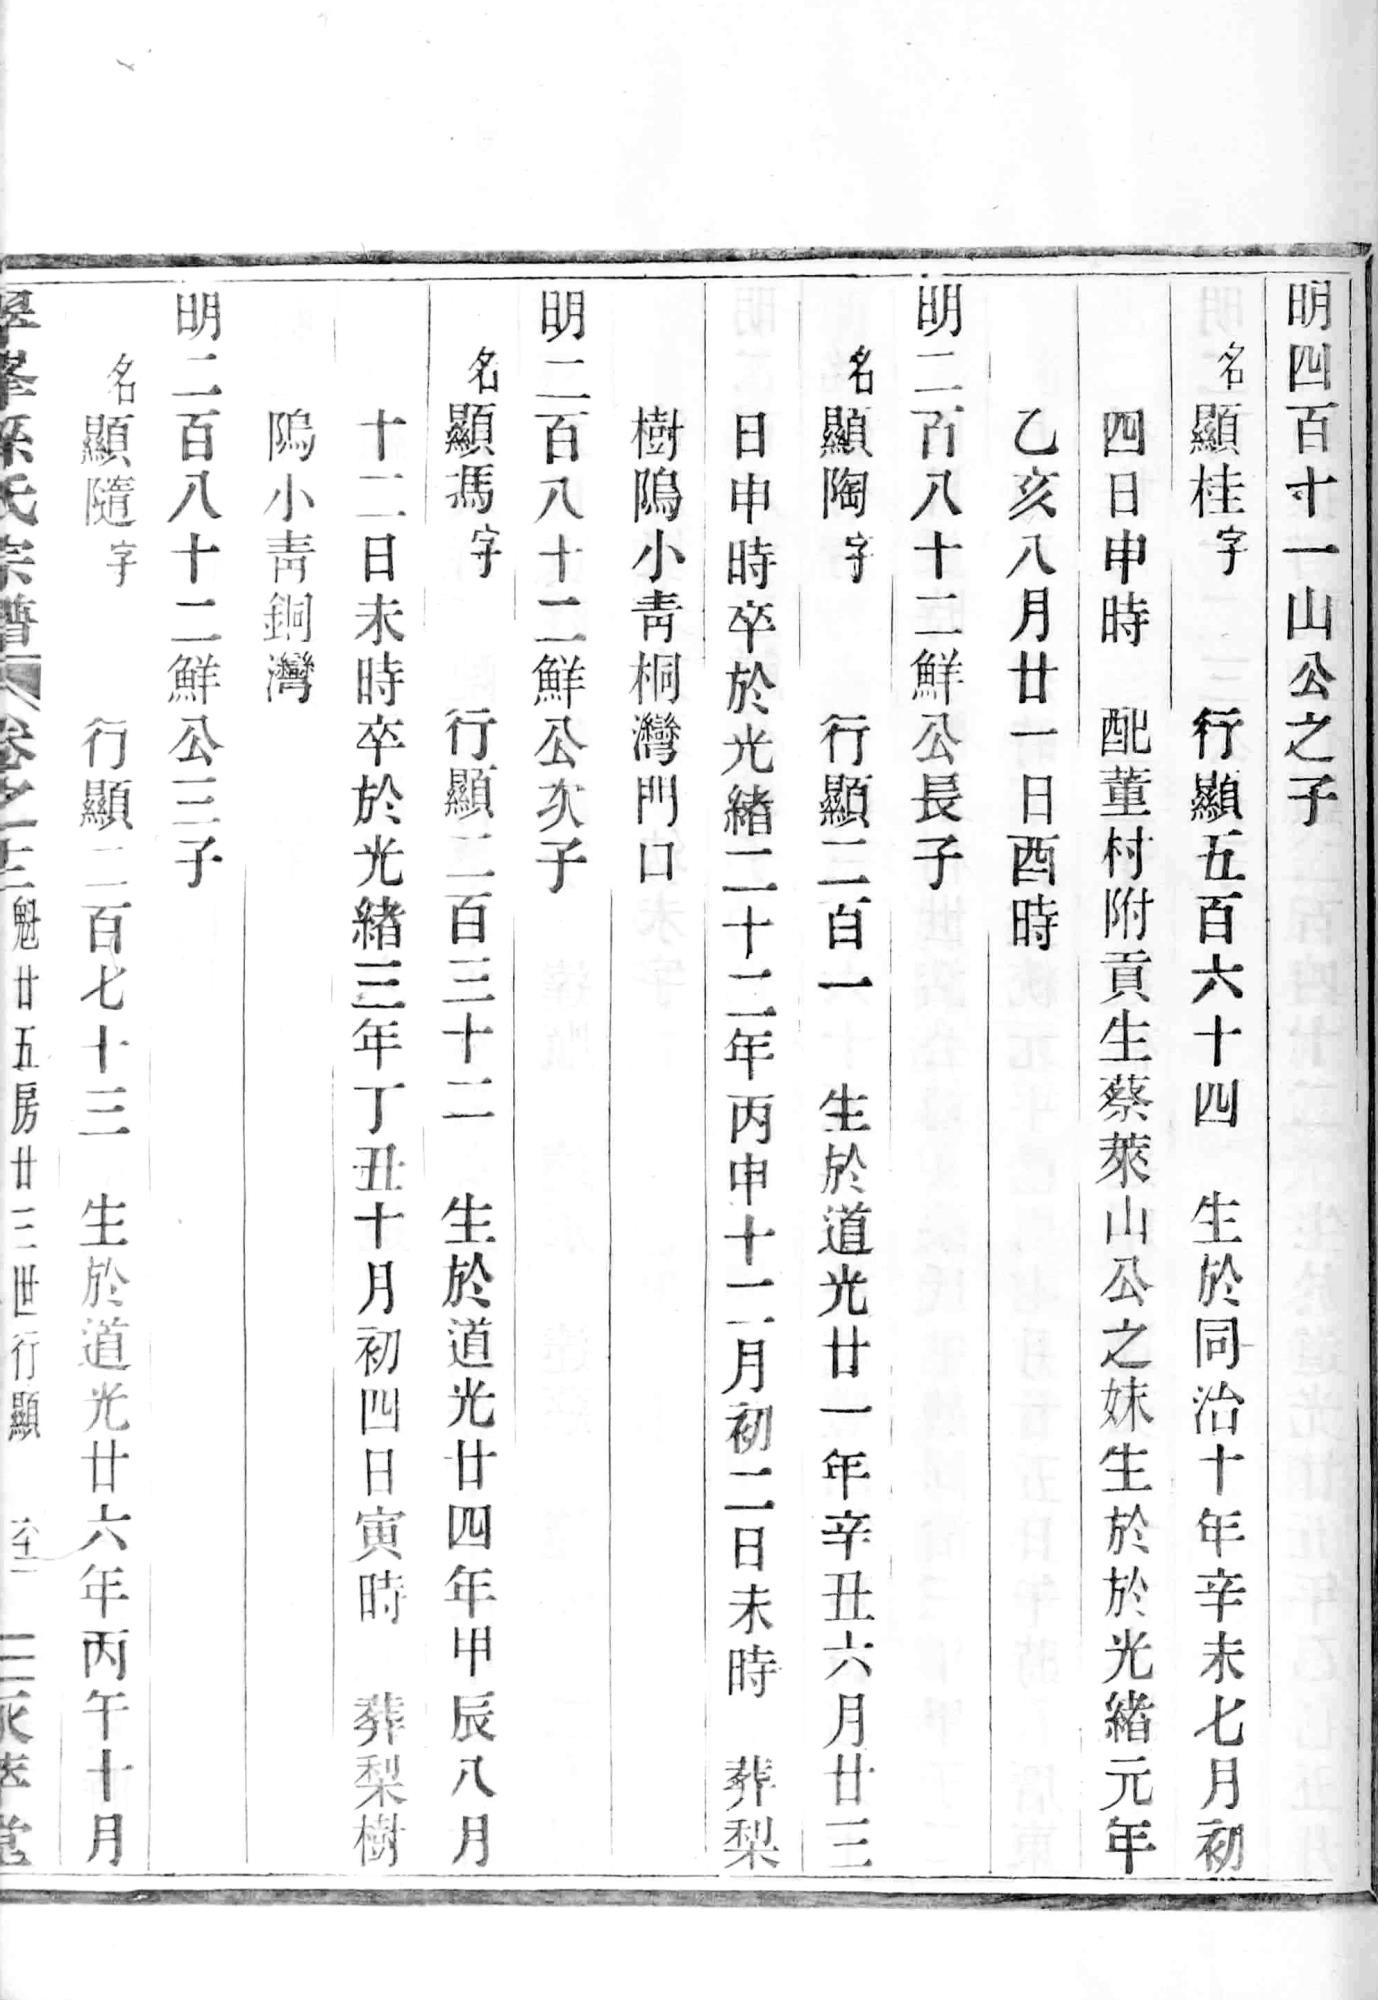 明四百十一山公之子
名顯桂字 行顯五百六十四 生於同治十年辛未七月初
四日申時 配董村附貢生蔡萊山公之妹生於於光緒元年
乙亥八月廿一日酉時
明二百八十二鮮公長子
名顯陶字 行顯二百一 生於道光廿一年辛丑六月廿三
日申時卒於光緒二十二年丙申十二月初二日未時 葬梨
樹隖小青桐灣門口
明二百八十二鮮公次子
名顯馮字 行顯二百三十二 生於道光廿四年甲辰八月
十二日未時卒於光緒三年丁丑十月初四日寅時 葬梨樹
隖小青銅灣
明二百八十二鮮公三子
名顯隨字 行顯二百七十三 生於道光廿六年丙午十月
孫氏宗譜 卷之 魁廿五房廿三世行顯 堂